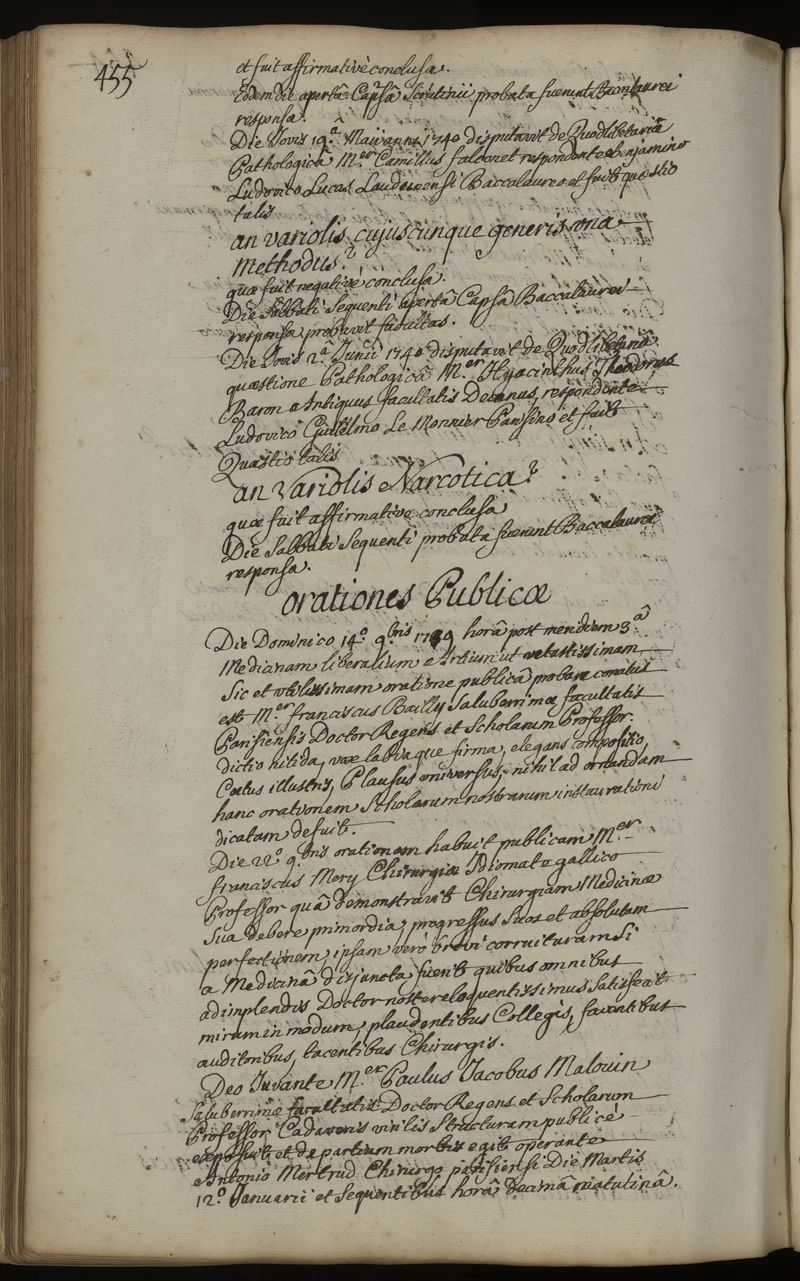 455
et fuit affirmativè conclusa.
Eodem die apertâ Capsâ Scrutinii probata fuerunt Baccalaurei
responsa.
Die Jovis 19.ª Maii anni 1740 disputavit de Quodlibetariâ
Pathologicâ M.er Camillus falconet respondente Benjamino
Ludovico Lucas Laudunensi Baccalaureo et fuit quæstio
talis
an variolis cujuscunque generis una
Methodus?
quæ fuit negativè conclusa.
Die Sabbati Sequenti apertâ Capsâ Baccalaurei
responsa probavit facultas.
Die Jovis 2.ª Junii 1740 disputavit de Quodlibetariâ
quæstione Pathologicâ M.er Hyacinthus Theodorus
Baron Antiquus facultatis Decanus, respondente
Ludovico Guilelmo Le Monnier Parisino et fuit
Quæstio talis
an Variolis Narcotica?
quæ fuit affirmative conclusa
Die Sabbati Sequenti probata fuerunt Baccalaurei
responsa.
orationes Publicæ
Die Dominico 14.º 9.bris 1739 horâ post meridiem 3.â
Medicinam liberalium Artium ut vetustissimam,
Sic et utilissimam oratione publicâ probare conatus
est M.er franciscus Bailly Saluberrimæ facultatis
Parisiensis Doctor Regens et Scholarum Professor.
dictio nitida, vox latvaque firma, elegans compositio,
Cœtus illustris, Plausus universus, nihil ad ornandam
hanc orationem Scholarum nostrarum instaurationi
dicatam defuit.
Die 22.º 9.bris orationem habuit publicam M.er
franciscus Mery Chirurgiæ Idiomate gallico
Professor quâ demonstravit Chirurgiam Medicinæ
Sua debere primordia, progressus Suos et absolutam
perfectionem, ipsam verò brevi corruituram Si
a Medicinâ disjuncta fuerit quibus omnibus
adimplendis Doctor noster eloquentissimus Satisfecit
mirum in modum, plaudentibus Collegis, faventibus
auditoribus, tacentibus Chirurgis.
Deo Juvante M.er Paulus Jacobus Malouin
Saluberrimæ facultatis Doctor Regens et Scholarum
Professor Cadaveris virilis Structuram publicè
exposuit, et de partium morbis egit operante
Antonio Mertrud Chirurgo parisiensi Die Martis
12.º Januarii et Sequentibus horâ decimâ matutinâ.